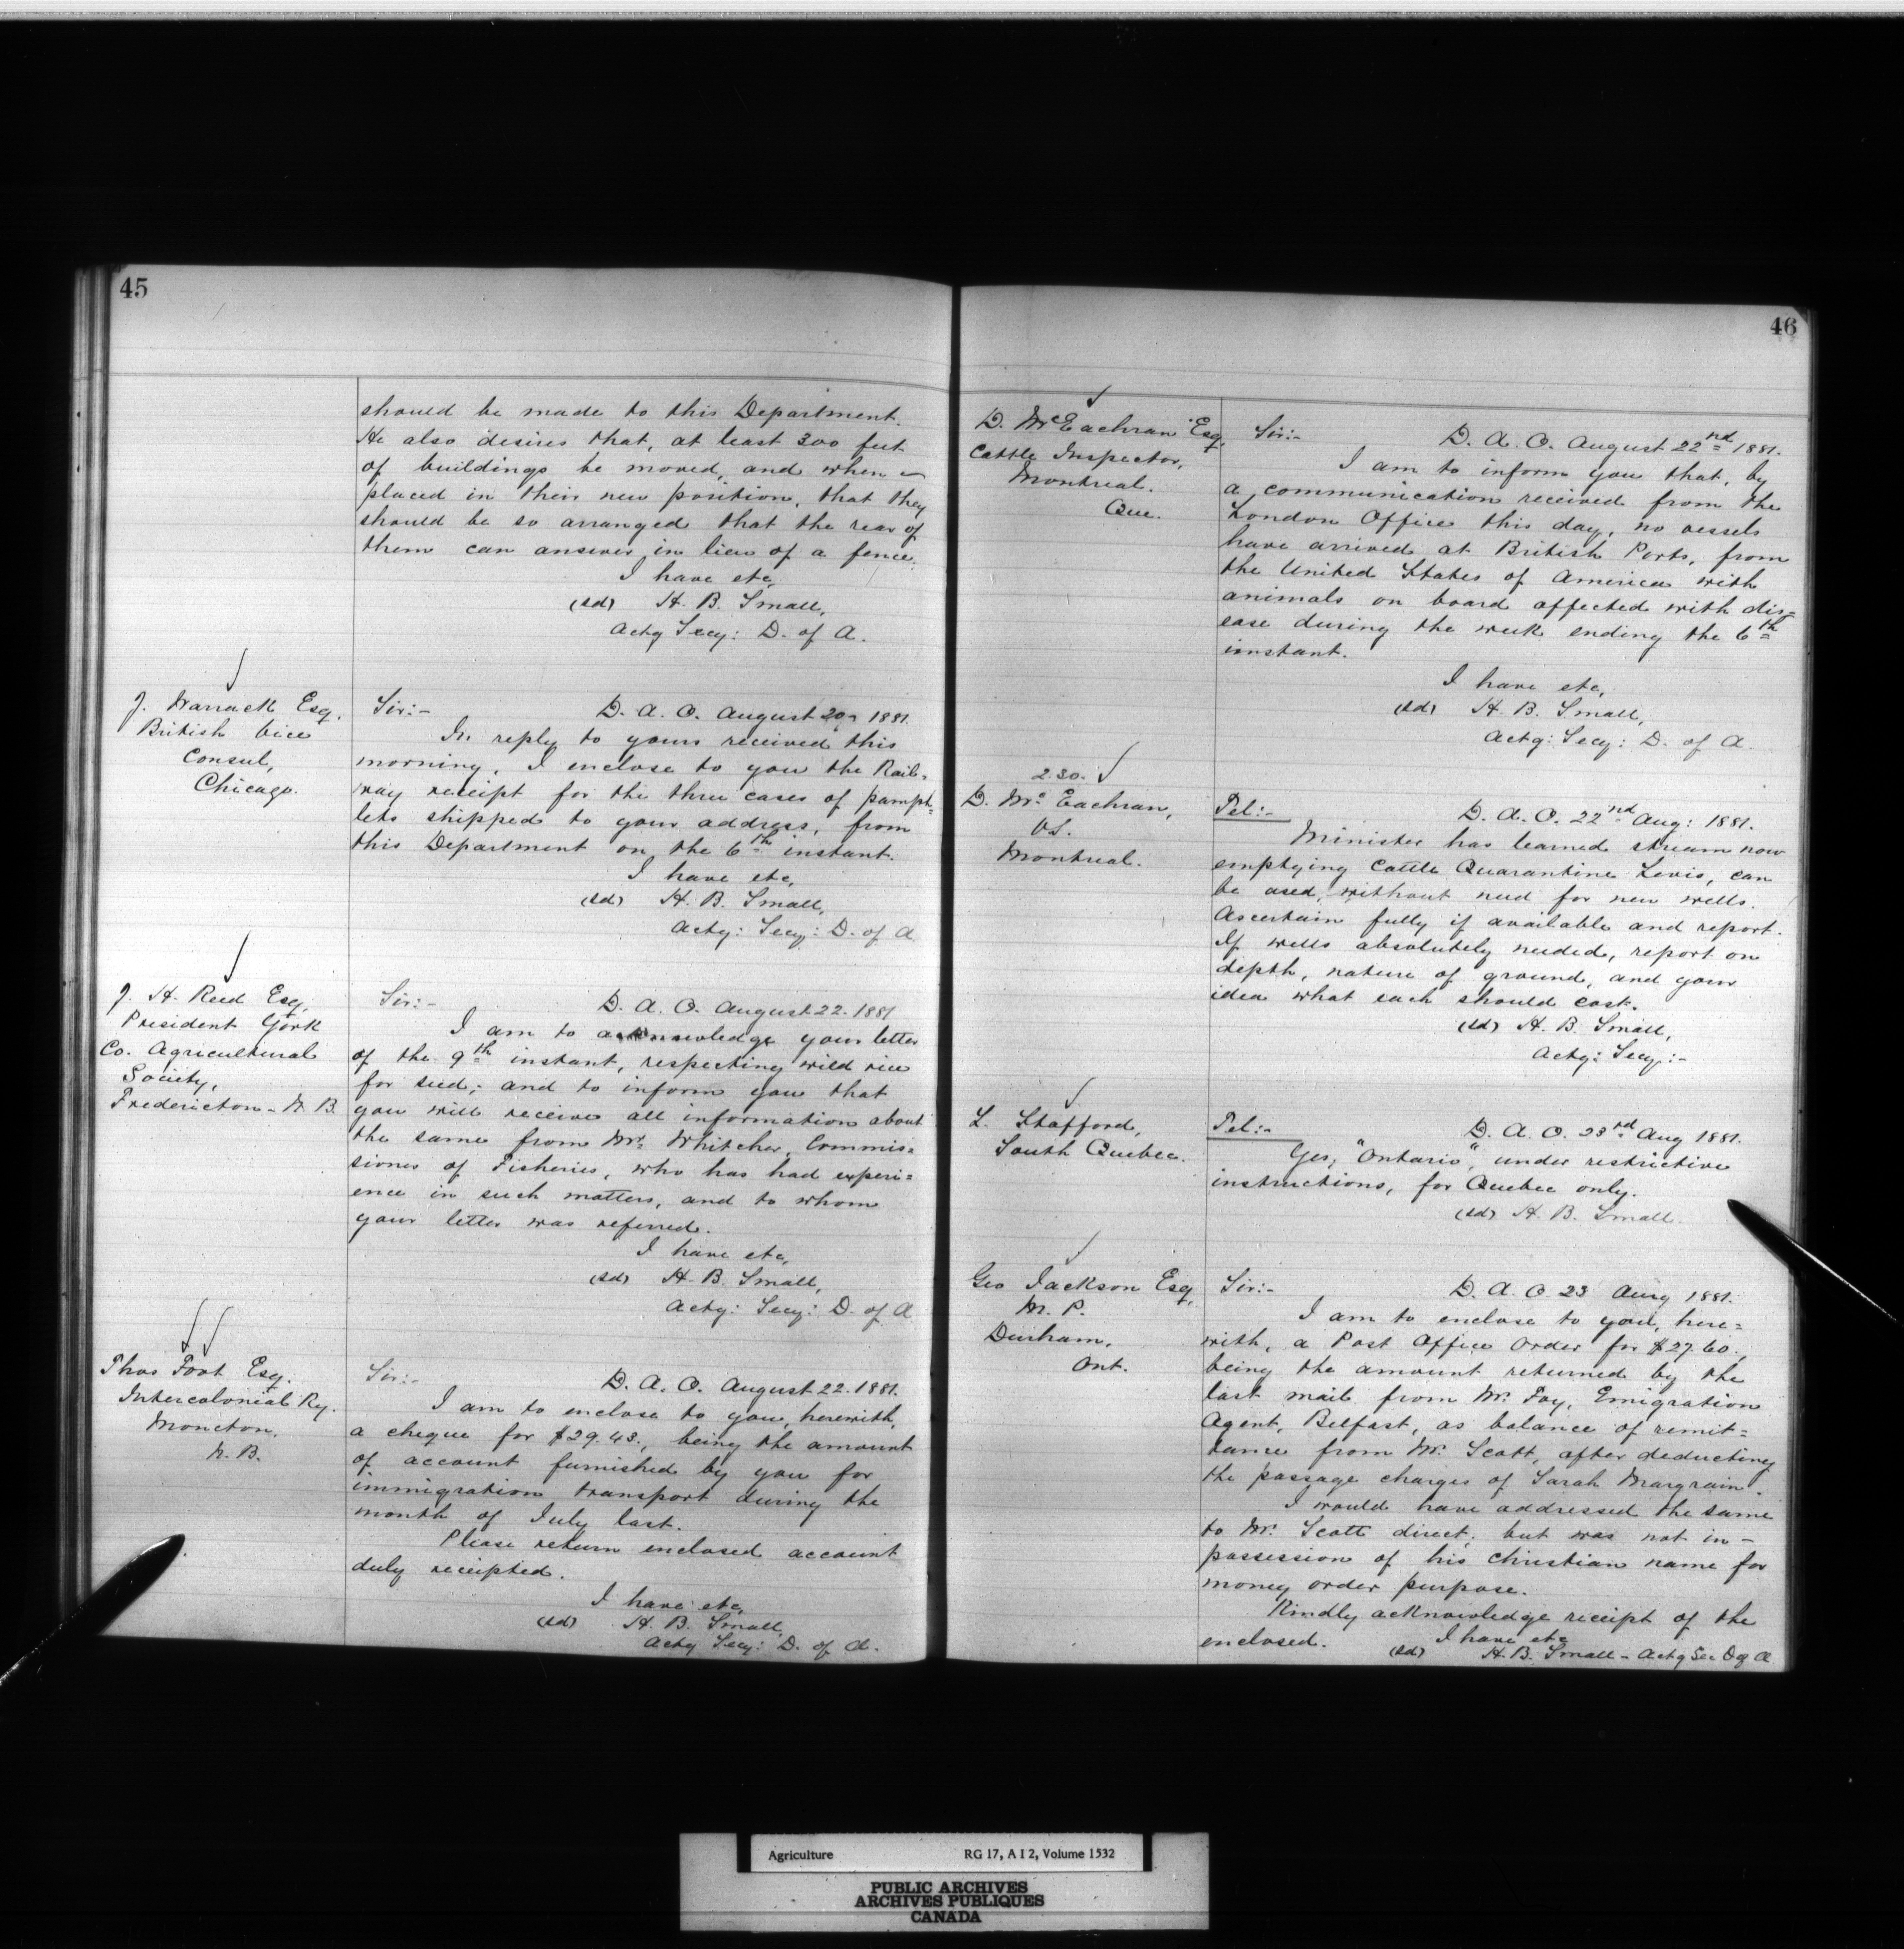 45
should be made to this Department.
He also desires that, at least 300 feet
of buildings be moved, and when
placed in their new position, that they
should be so arranged that the rear of
them can answer in lieu of a fence.
I have etc,
(sd) H. B. Small,
Actg Secy: D. of A.
J. Warrack Esq,
British Vice
Consul,
Chicago.
Sir:-
D. A. O. August 20 1881.
In reply to yours received this
morning, I enclose to you the Rail=
way receipt for the three cases of pamph=
lets shipped to your address, from
this Department on the 6th instant.
I have etc,
(sd) H. B. Small,
Actg: Secy: D. of A
J. H. Reed Esq,
President York
Co. Agricultural
Society,
Fredericton - N. B.
Sir:-
D. A. O. August 22. 1881
I am to acknowledge your letter
of the 9th instant, respecting wild rice
for seed; and to inform you that
you will receive all information about
the same from Mr. Whitcher, Commis=
sioner of Fisheries, who has had experi=
ence in such matters, and to whom
your letter was referred.
I have etc,
(sd) H. B. Small,
Actg: Secy: D. of A
Thos Foot Esq.
Intercolonial Ry.
Moncton,
N. B.
Sir:-
D. A. O. August 22. 1881.
I am to enclose to you, herewith,
a cheque for $29.43., being the amount
of account furnished by you for
immigration transport during the
month of July last.
Please return enclosed account
duly receipted.
I have etc,
(sd) H. B. Small,
Actg Secy: D. of A.
46
D. McEachran Esq,
Cattle Inspector,
Montreal.
Que.
Sir:-
D. A. O. August 22nd 1881.
I am to inform you that, by
a communication received from the
London Office this day, no vessels
have arrived at British Ports, from
the United States of America with
animals on board affected with dis=
ease during the week ending the 6th
instant.
I have etc,
(sd) H. B. Small,
Actg: Secy: D. of A.
2.30.
D. Mc Eachran,
V.S.
Montreal.
Tel:-
D. A. O. 22nd Aug: 1881.
Minister has learned stream now
emptying Cattle Quarantine Levis, can
be used, without need for new wells.
Ascertain fully if available and report.
If wells absolutely needed, report on
depth, nature of ground, and your
idea what each should cost.
(sd) H. B. Small,
Actg: Secy:-
L. Stafford,
South Quebec.
Tel:-
D. A. O. 23rd Aug 1881.
Yes, "Ontario", under restrictive
instructions, for Quebec only.
(sd) H. B. Small.
Geo Jackson Esq,
M. P.
Durham,
Ont.
Sir:-
D. A. O 23 Aug 1881.
I am to enclose to you, here=
with, a Post Office Order for $27.60.,
being the amount returned by the
last mail from Mr. Foy, Emigration
Agent, Belfast, as balance of remit=
tance from Mr. Scott, after deducting
the passage charges of Sarah Margrain.
I would have addressed the same
to Mr. Scott direct, but was not in -
possession of his christian name for
money order purpose.
Kindly acknowledge receipt of the
enclosed.
I have etc
(sd) H. B. Small - Actg Sec D of A
Agriculture RG 17, A I 2, Volume 1532
PUBLIC ARCHIVES
ARCHIVES PUBLIQUES
CANADA